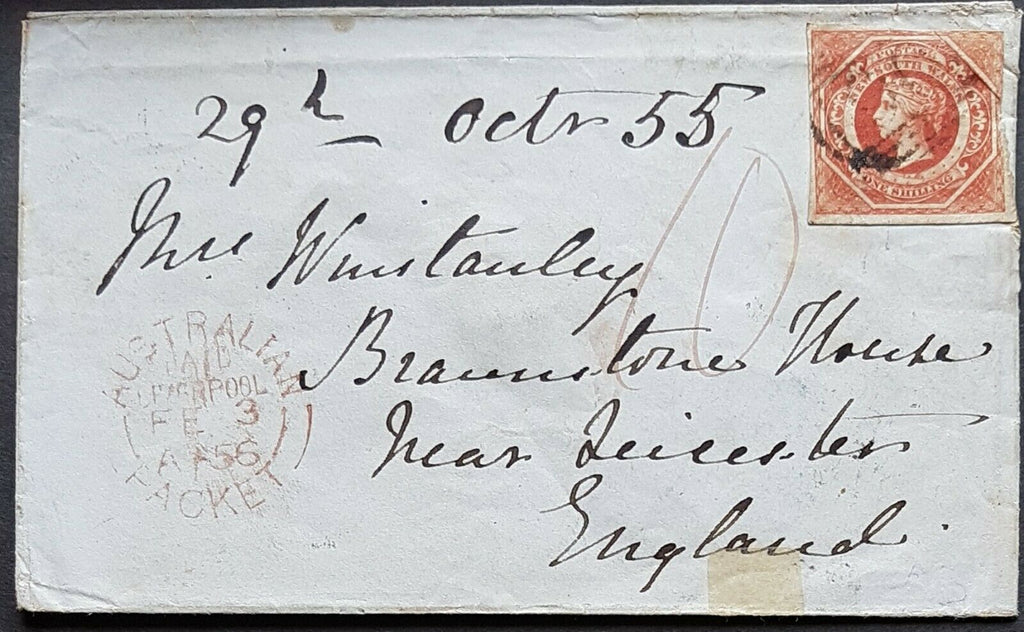 POSTAGE
NEW SOUTH WALES
ONE SHILLING
29th Octr 55
10
Mrs Winstanley
Braunstone House
Near Leicester
England
AUSTRALIAN
PAID
LIVERPOOL
FE 3
A 56
PACKET